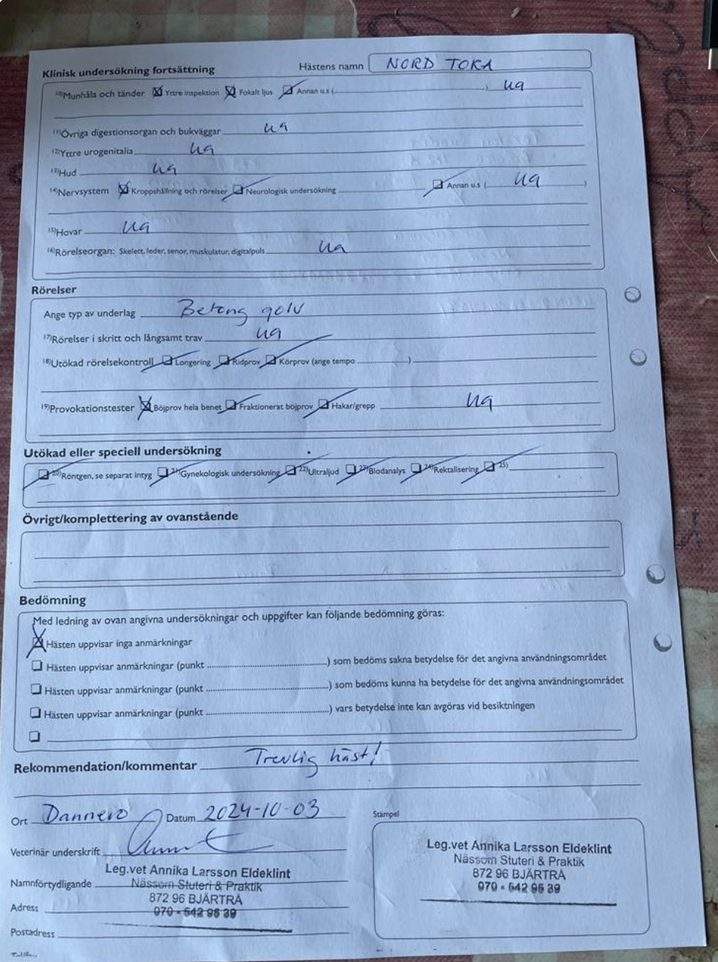 Klinisk undersökning fortsättning Hästens namn NORD TOKA
10)Munhåla och tänder Yttre inspektion Fokalt ljus Annan u.s ( ) ua
11)Övriga digestionsorgan och bukväggar ua
12)Yttre urogenitalia ua
13)Hud ua
14)Nervsystem Kroppshållning och rörelser Neurologisk undersökning Annan u.s ( ua )
15)Hovar ua
16)Rörelseorgan: Skelett, leder, senor, muskulatur, digitalpuls ua
Rörelser
Ange typ av underlag Betong golv
17)Rörelser i skritt och långsamt trav ua
18)Utökad rörelsekontroll Longering Ridprov Körprov (ange tempo )
19)Provokationstester Böjprov hela benet Fraktionerat böjprov Hakar/grepp ua
Utökad eller speciell undersökning
20)Röntgen, se separat intyg 21)Gynekologisk undersökning 22)Ultraljud 23)Blodanalys 24)Rektalisering 25)
Övrigt/komplettering av ovanstående
Bedömning
Med ledning av ovan angivna undersökningar och uppgifter kan följande bedömning göras:
Hästen uppvisar inga anmärkningar
Hästen uppvisar anmärkningar (punkt ) som bedöms sakna betydelse för det angivna användningsområdet
Hästen uppvisar anmärkningar (punkt ) som bedöms kunna ha betydelse för det angivna användningsområdet
Hästen uppvisar anmärkningar (punkt ) vars betydelse inte kan avgöras vid besiktningen
Rekommendation/kommentar Trevlig häst!
Ort Dannero Datum 2024-10-03 Stämpel
Veterinär underskrift
Leg.vet Annika Larsson Eldeklint
Namnförtydligande Nässom Stuteri & Praktik
872 96 BJÄRTRÅ
Adress 070 - 542 95 39
Postadress
Leg.vet Annika Larsson Eldeklint
Nässom Stuteri & Praktik
872 96 BJÄRTRÅ
070 - 542 95 39